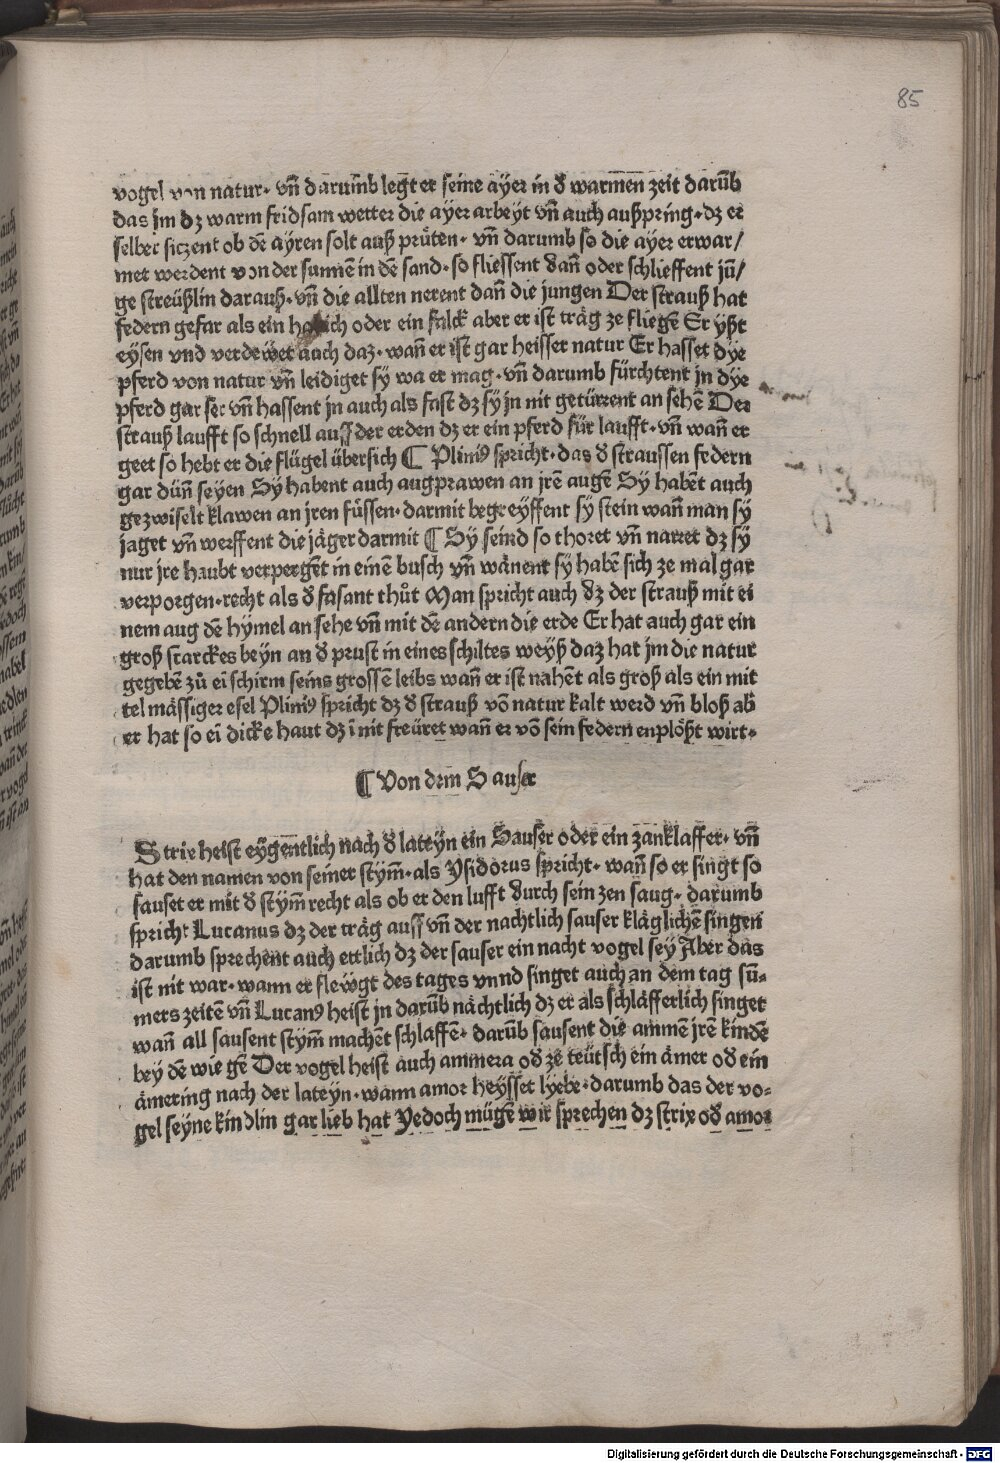 85
vogel von natur· vn̄ darum̄b legt er seine aẏer in ꝺ warmen zeit darūb
das jm dz warm fridsam wetter die aẏer arbeyt vn̄ auch außpring· dz er
selber siczent ob dē aẏren solt auß pru̇ten· vn̄ darumb so die aẏer erwar/
met werdent von der sunnē in dē sand· so fliessent dan̄ oder schlieffent jū/
ge streüßlin darauß· vn̄ die allten nerent dan̄ die jungen Der strauß hat
federn gefar als ein habich oder ein falck aber er ist träg ze fliegē Er ẏßt
eysen vnd verdewet auch daz· wan̄ er ist gar heisser natur Er hasset dẏe
pferd von natur vn̄ leidiget sẏ wa er mag· vn̄ darumb fürchtent jn dẏe
pferd gar ser vn̄ hassent jn auch als fast dz sẏ jn nit getürrent an sehē Der
strauß laufft so schnell auff der erden dz er ein pferd für laufft· vn̄ wan̄ er
geet so hebt er die flügel übersich ¶ Pliniꝰ spricht· das ꝺ straussen federn
gar dün̄ seyen Sẏ habent auch augprawen an jrē augē Sẏ habēt auch
gezwiselt klawen an jren füssen· darmit begreẏffent sẏ stein wan̄ man sẏ
jaget vn̄ werffent die jäger darmit ¶ Sẏ seind so thoret vn̄ narret dz sẏ
nur jre haubt verpergēt in einē busch vn̄ wänent sẏ habē sich ze mal gar
verporgen· recht als ꝺ fasant thůt Man spricht auch dz der strauß mit ei
nem aug dē hẏmel an sehe vn̄ mit dē andern die erde Er hat auch gar ein
groß starckes beẏn an ꝺ prust in eines schiltes weẏß daz hat jm die natur
gegebē zů eī schirm seins grossē leibs wan̄ er ist nahēt als groß als ein mit
tel mässiger esel Pliniꝰ spricht dz ꝺ strauß vō natur kalt werd vn̄ bloß ab̄
er hat so eī dicke haut dz ī nit freüret wan̄ er vō sein federn enplößt wirt·
¶ Von dem Sauser
Strix heist eẏgentlich nach ꝺ lateẏn ein Sauser oder ein zanklaffer· vn̄
hat den namen von seiner stẏm̄· als Ysidorus spricht· wan̄ so er singt so
sauset er mit ꝺ stẏm̄ recht als ob er den lufft durch sein zen saug· darumb
spricht Lucanus dz der träg auff vn̄ der nachtlich sauser kläglichē singen
darumb sprechēnt auch ettlich dz der sauser ein nacht vogel seẏ Aber das
ist nit war· wann er flewgt des tages vnnd singet auch an dem tag sū-
mers zeitē vn̄ Lucanꝰ heist jn darūb nächtlich dz er als schläfferlich singet
wan̄ all sausent stẏm̄ machēt schlaffē· darūb sausent die ammē jrē kindē
beẏ dē wiegē Der vogel heist auch ammera oꝺ ze teütsch ein ämer oꝺ ein
ämering nach der lateẏn· wann amor heẏsset lẏebe· darumb das der vo-
gel seẏne kindlin gar lieb hat Yedoch mügē wir sprechen dz strix oꝺ amor
Digitalisierung gefördert durch die Deutsche Forschungsgemeinschaft - DFG